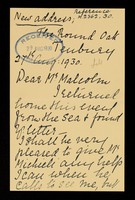 New address,
reference
The Round Oak
Tenbury
27 Aug 1930.
Dear Mr Malcolm
I returned
home this even
from the sea & found
yr letter.
I shall be very
pleased to give Mr
Michell any help
I can when he
calls to see me, but